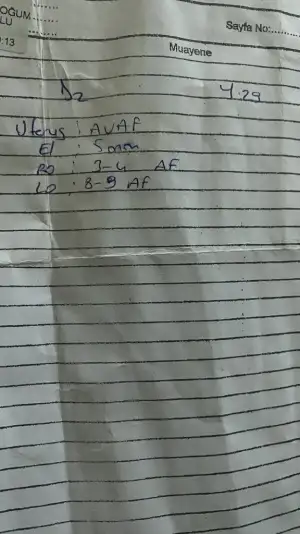 OĞUM......
LU ........
:13
Sayfa No:......
Muayene
D2 4.29
Uterus : AVAF
E : 5 mm
RO : 3-4 AF
LO : 8-9 AF